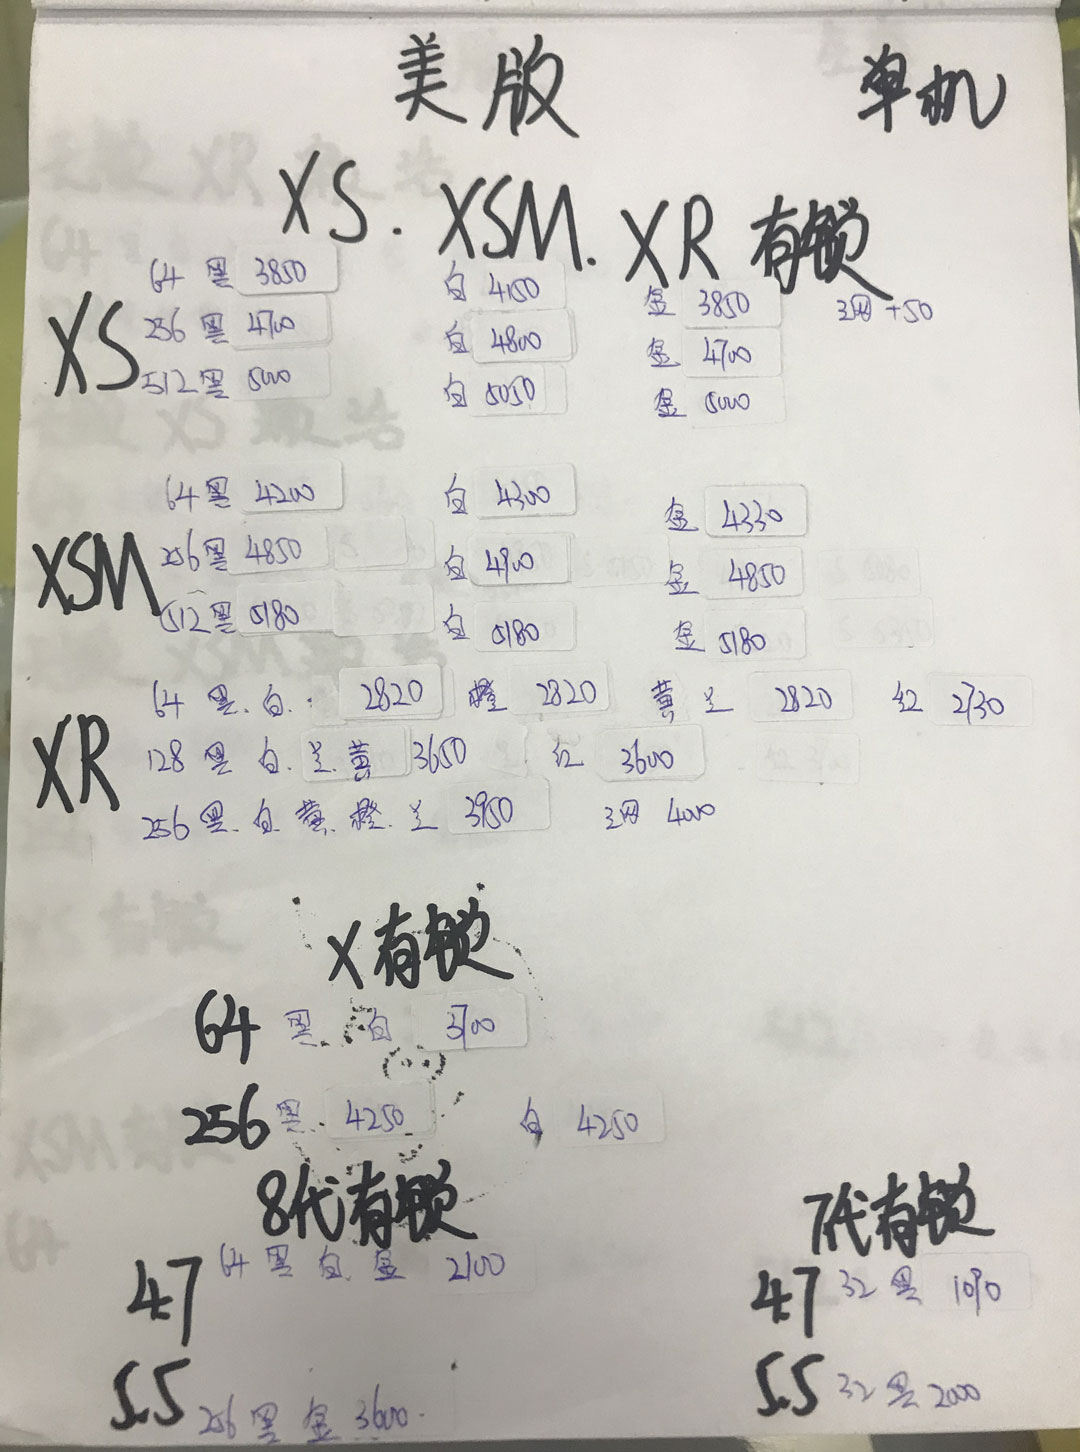 美版 单机
XS. XSM. XR 有锁
XS
64 黑 3850 白 4150 金 3850 3网 +50
256 黑 4700 白 4800 金 4700
512 黑 5000 白 5050 金 5000
XSM
64 黑 4200 白 4300 金 4330
256 黑 4850 白 4900 金 4850
512 黑 5180 白 5180 金 5180
XR
64 黑.白. 2820 橙 2820 黄 兰 2820 红 2730
128 黑 白.兰.黄 3650 红 3600
256 黑.白.黄.橙.兰 3950 3网 4000
X有锁
64 黑 白 3700
256 黑. 4250 白 4250
8代有锁 7代有锁
47 64 黑 白 金 2100 47 32 黑
5.5 256 黑 金 3600. 5.5 32 黑 2000